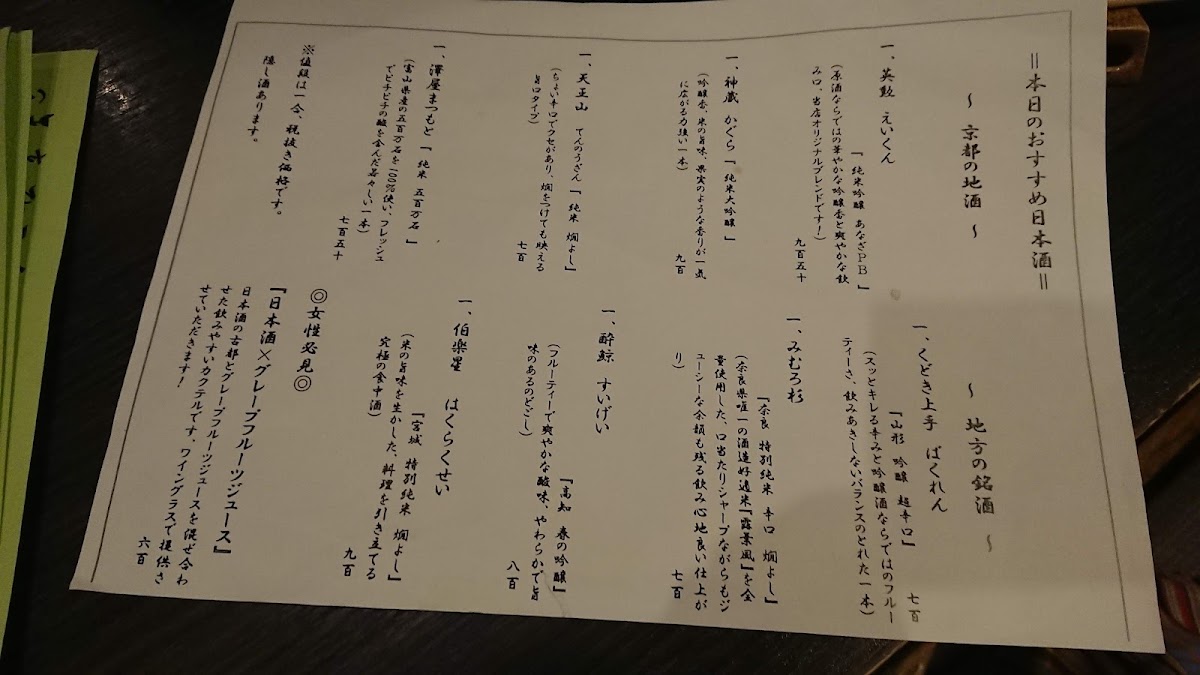 ＝本日のおすすめ日本酒＝
～ 京都の地酒 ～
一、英勲 えいくん
「純米吟醸 あなざPB」
(原酒ならではの華やかな吟醸香と爽やかな飲
み口、当店オリジナルブレンドです！)
九百五十
一、神蔵 かぐら「純米大吟醸」
(吟醸香、米の旨味、果実のような香りが一気
に広がる力強い一本)
九百
一、天王山 てんのうざん「純米 燗よし」
(ちょい辛口でクセがあり、燗をつけても映える
旨口タイプ)
七百
一、澤屋まつもと「純米 五百万石」
(富山県産の五百万石を100%使い、フレッシュ
でピチピチの酸を含んだ若々しい一本)
七百五十
※値段は一合、税抜き価格です。
隠し酒あります。
～ 地方の銘酒 ～
一、くどき上手 ばくれん
『山形 吟醸 超辛口』
七百
(スッとキレる辛みと吟醸酒ならではのフルー
ティーさ、飲みあきしないバランスのとれた一本)
一、みむろ杉
『奈良 特別純米 辛口 燗よし』
(奈良県唯一の酒造好適米『露葉風』を全
量使用した、口当たりシャープながらもジ
ューシーな余韻も残る飲み心地良い仕上が
り)
七百
一、酔鯨 すいげい
『高知 春の吟醸』
(フルーティーで爽やかな酸味、やわらかで旨
味のあるのどごし)
八百
一、伯楽星 はくらくせい
『宮城 特別純米 燗よし』
(米の旨味を生かした、料理を引き立てる
究極の食中酒)
九百
◎女性必見◎
『日本酒×グレープフルーツジュース』
日本酒の古都とグレープフルーツジュースを混ぜ合わ
せた飲みやすいカクテルです、ワイングラスで提供さ
せていただきます！
六百